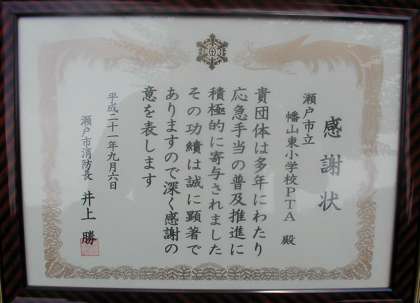 感謝状
瀬戸市立
幡山東小学校PTA 殿
貴団体は多年にわたり
応急手当の普及推進に
積極的に寄与されました
その功績は誠に顕著で
ありますので深く感謝の
意を表します
平成二十一年九月六日
瀬戸市消防長 井上 勝